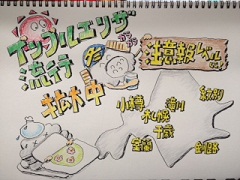 インフルエンザ
流行
拡大中
注意報レベル
小樽
札幌
滝川
紋別
千歳
室蘭
釧路